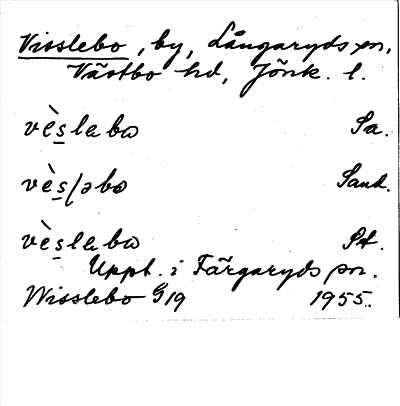 Visslebo, by, Långaryds sn,
Västbo hd, Jönk. l.
vè̱slabo Sa.
vè̱s/əbo Sand.
vè̱slabo Pt.
Uppt. i Färgaryds sn.
Wisslebo G19 1955.